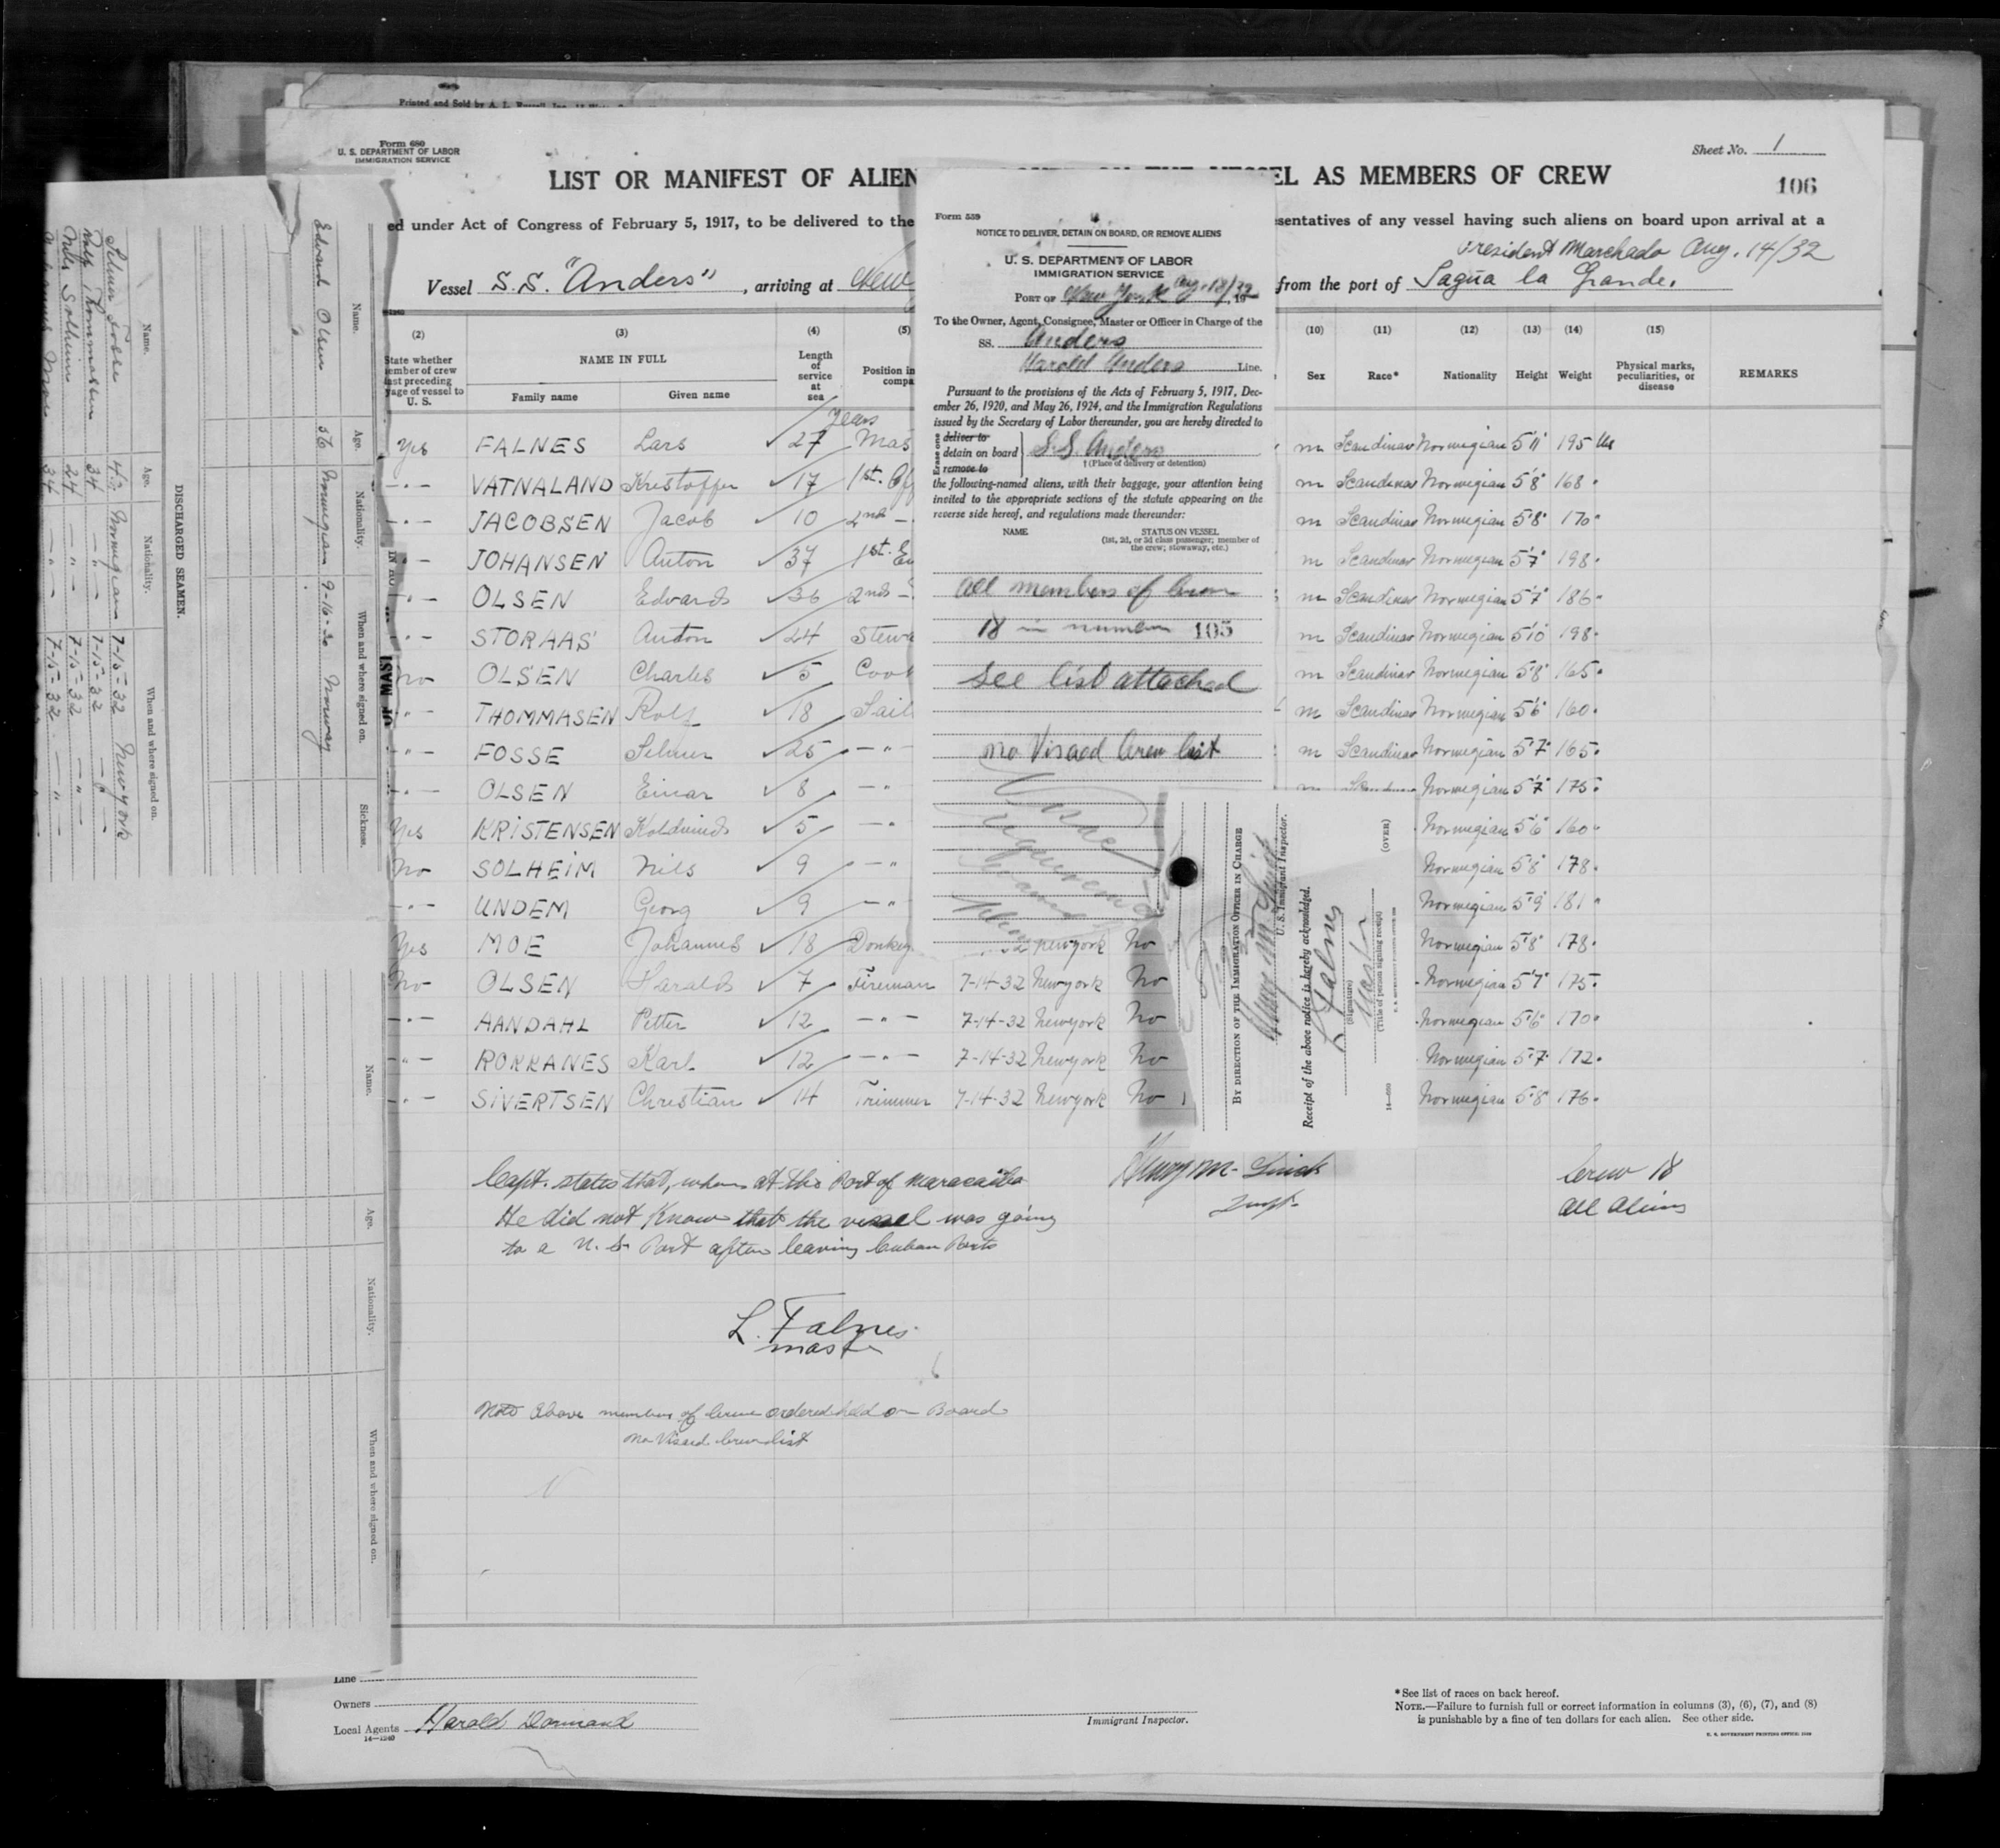 Printed and Sold by A. L.
Form 680
U. S. DEPARTMENT OF LABOR
IMMIGRATION SERVICE
Sheet No. 1
LIST OR MANIFEST OF ALIEN
EL AS MEMBERS OF CREW
106
ed under Act of Congress of February 5, 1917, to be delivered to the
sentatives of any vessel having such aliens on board upon arrival at a
President Marchado Aug. 14/32
Vessel S.S. "Anders", arriving at New
from the port of Sagua la Grande.
(2) (3) (4) (5) (10) (11) (12) (13) (14) (15)
State whether
ember of crew
ast preceding
yage of vessel to
U. S.
NAME IN FULL
Family name Given name
Length
of
service
at
sea
Position in
compa
Sex Race* Nationality Height Weight
Physical marks,
peculiarities, or
disease
REMARKS
Years
Yes FALNES Lars 27 Mas m Scandinav Norwegian 5'11" 195
-"- VATNALAND Kristoffer 17 1st. Off m Scandinav Norwegian 5'8" 168
-"- JACOBSEN Jacob 10 2nd - m Scandinav Norwegian 5'8" 170
-"- JOHANSEN Anton 37 1st. En m Scandinav Norwegian 5'7" 198
-"- OLSEN Edvard 36 2nd - m Scandinav Norwegian 5'7" 186
-"- STORAAS Anton 24 Stewa m Scandinav Norwegian 5'10" 198
No OLSEN Charles 5 Cook m Scandinav Norwegian 5'8" 165
-"- THOMMASEN Rolf 18 Sail m Scandinav Norwegian 5'6" 160
-"- FOSSE Selmer 25 -"- m Scandinav Norwegian 5'7" 165
-"- OLSEN Einar 8 -"- Norwegian 5'7" 175
Yes KRISTENSEN 5 -"- Norwegian 5'6" 160
No SOLHEIM Nils 9 -"- Norwegian 5'8" 178
-"- UNDEM Georg 9 -"- Norwegian 5'9" 181
Yes MOE Johannes 18 Donkey New york No Norwegian 5'8" 178
No OLSEN Harald 7 Fireman 7-14-32 New york No Norwegian 5'7" 175
-"- AANDAHL Petter 12 -"- 7-14-32 New york No Norwegian 5'6" 170
-"- RORRANES Karl 12 -"- 7-14-32 New york No Norwegian 5'7" 172
-"- SIVERTSEN Christian 14 Trimmer 7-14-32 New york No Norwegian 5'8" 176
Capt. states that, when at the Port of Maracaibo
He did not Know that the vessel was going
to a U.S. Port after leaving Cuban Ports
L. Falnes
master
Henry M.
Insp.
Crew 18
all aliens
Note Above members of Crew ordered held on Board
no Visaed Crew list
Line
Owners
Local Agents Harold
14—1240
Immigrant Inspector.
*See list of races on back hereof.
NOTE.—Failure to furnish full or correct information in columns (3), (6), (7), and (8)
is punishable by a fine of ten dollars for each alien. See other side.
U. S. GOVERNMENT PRINTING OFFICE
Form 559
NOTICE TO DELIVER, DETAIN ON BOARD, OR REMOVE ALIENS
U. S. DEPARTMENT OF LABOR
IMMIGRATION SERVICE
PORT OF New York Aug. 18/32
To the Owner, Agent, Consignee, Master or Officer in Charge of the
SS. Anders
Harold Anders Line.
Pursuant to the provisions of the Acts of February 5, 1917, Dec-
ember 26, 1920, and May 26, 1924, and the Immigration Regulations
issued by the Secretary of Labor thereunder, you are hereby directed to
Erase one
deliver to
detain on board
remove to
S.S. Anders
†(Place of delivery or detention)
the following-named aliens, with their baggage, your attention being
invited to the appropriate sections of the statute appearing on the
reverse side hereof, and regulations made thereunder:
NAME STATUS ON VESSEL
(1st, 2d, or 3d class passenger; member of
the crew; stowaway, etc.)
All members of Crew
18 in number 105
See list attached
no Visaed Crew list
BY DIRECTION OF THE IMMIGRATION OFFICER IN CHARGE
Henry M.
U.S. Immigrant Inspector.
Receipt of the above notice is hereby acknowledged.
L Falnes
(Signature)
Master
(Title of person signing receipt)
(OVER)
DISCHARGED SEAMEN.
Name. Age. Nationality. When and where signed on. Sickness.
Edvard Olsen 56 Norwegian 9-16-30 Norway
Name. Age. Nationality. When and where signed on.
Selmer Fosse 43 Norwegian 7-15-32 New york
Rolf Thommassen 34 -"- 7-15-32 -"-
Nils Solheim 24 -"- 7-15-32 -"-
Johannes Moe 34 -"- 7-15-32 -"-
Name. Age. Nationality. When and where signed on.